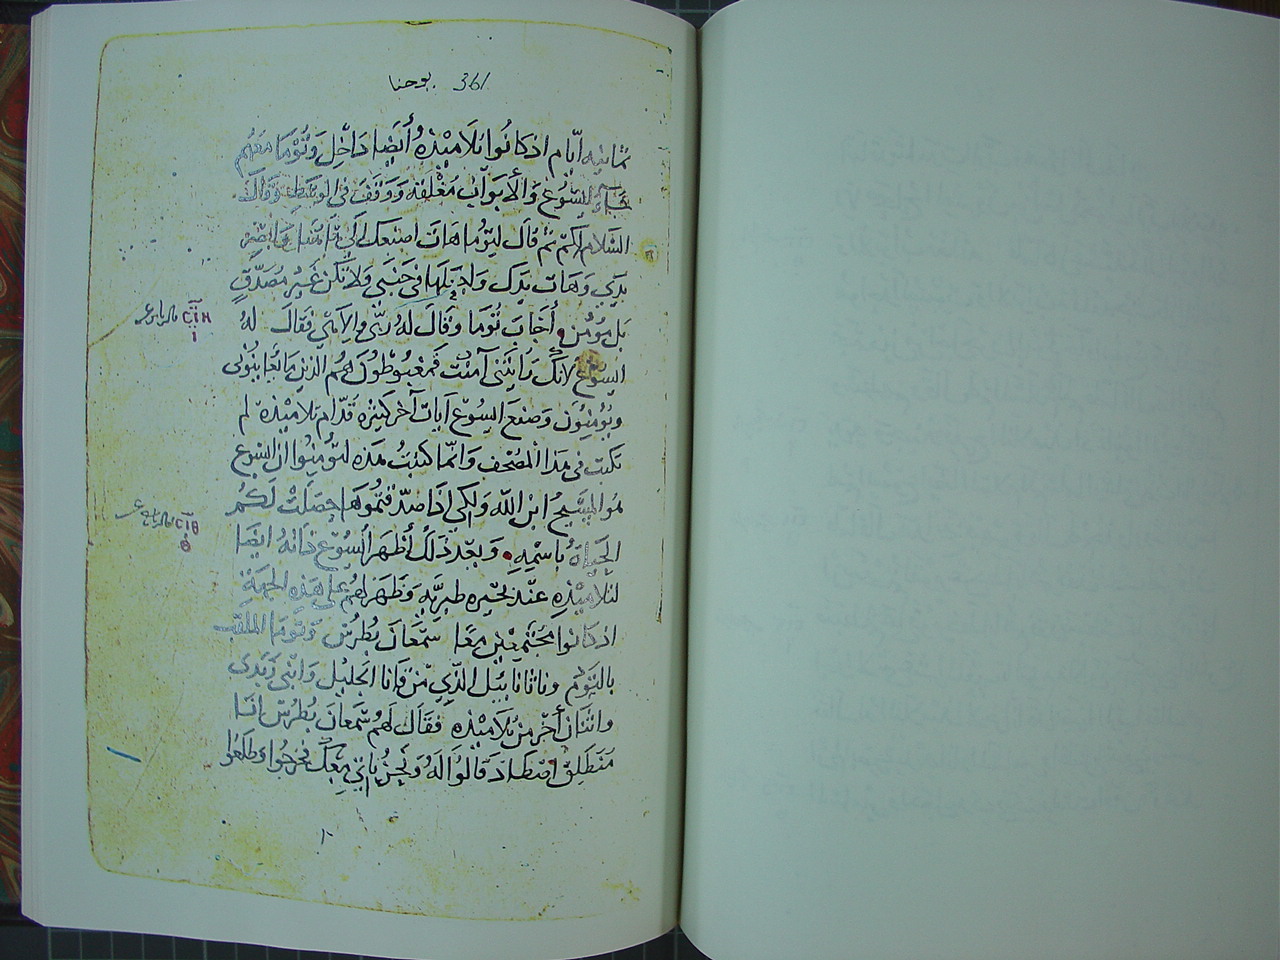 361 يوحنا
ثمانيه ايّام اذ كانُوا تلَامِيْذهُ أيضًا دَاخِل وَتُوْمَا مَعَهُم
جاءَ ايسُوع وَالأبوَابُ مُغْلقه وَوَقفَ في الوسَطِ وَقالَ
السَّلَام لكمْ ثم قال لتوُما هَات اصبعك الَي هَاهُنا وَابصر
يدَي وَهَات يدَك وَادخلهَا في جَنبي وَلا تكن غَير مُصَدّقٍ
بَل مؤمن أجَابَ تُومَا وقَال لهُ رَبّي وَالاهي فقَالَ لهُ
ايسُوع لانكَ رَايتَني آمنْت فمغبُوطُون هُم الذين مَا عَاينُوني
ويُؤمنِوُن وَصَنعَ ايسُوع آيات آخر كثيره قدّام تلاميْذه لم
تكتب في هَذا المُصْحَف وَانّما كتبتُ هَذه لتؤمنِوُا ان ايسوع
هُو المَسِيْحُ ابن اللّه وَلكي اذا صدّقتمُوهَا حصَلَتْ لَكُم
الحَيَاةُ باسْمِهِ وبعد ذَلكَ أظهَرَ ايسُوع ذاتهُ ايضًا
لتلاميْذِهِ عنْد بحَيره طبريَّهِ وَظَهَرَ لهُم على هَذِهِ الجهَةِ
اذ كانوُا مجتمعِيْن معًا سمعَانَ بُطرُسْ وَتومَا الملقب
بالتَوم وناثانايئل الذي من قَانا الجليْل وَابْنَي زَبَدَى
وَاثنَان أخَر منْ تلاميْذه فقَالَ لهُم سمعَان بُطرُسْ انا
مُنطَلِق اصطَاد قالوُا لَهُ وَنحنُ ناتي معَكَ فخرجُوا وَطلعُوا